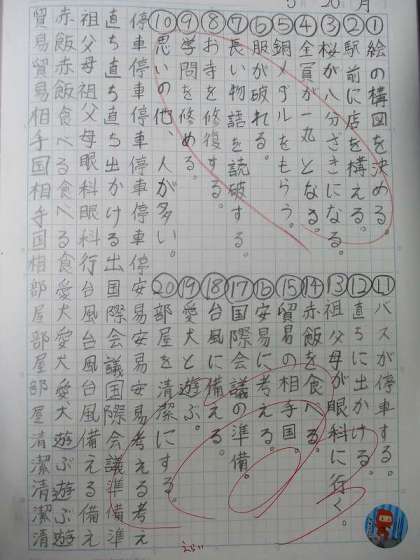 5 月
①絵の構図を決める。
②駅前に店を構える。
③桜が八分ざきになる。
④全員が一丸となる。
⑤銅メダルをもらう。
⑥服が破れる。
⑦長い物語を読破する。
⑧お寺を修復する。
⑨学問を修める。
⑩思いの他、人が多い。
⑪バスが停車する。
⑫直ちに出かける。
⑬祖父母が眼科に行く。
⑭赤飯を食べる。
⑮貿易の相手国。
⑯安易に考える。
⑰国際会議の準備。
⑱台風に備える。
⑲愛犬と遊ぶ。
⑳部屋を清潔にする。
停車停車停車停車安易安易考える考え
直ち直ち出かける出国際会議国際会議準備準
祖父母祖父母眼科眼科行台風台風備える備え
赤飯赤飯食べる食べる食愛犬愛犬遊ぶ遊ぶ遊
貿易貿易相手国相手国相部屋部屋部屋清潔清潔清